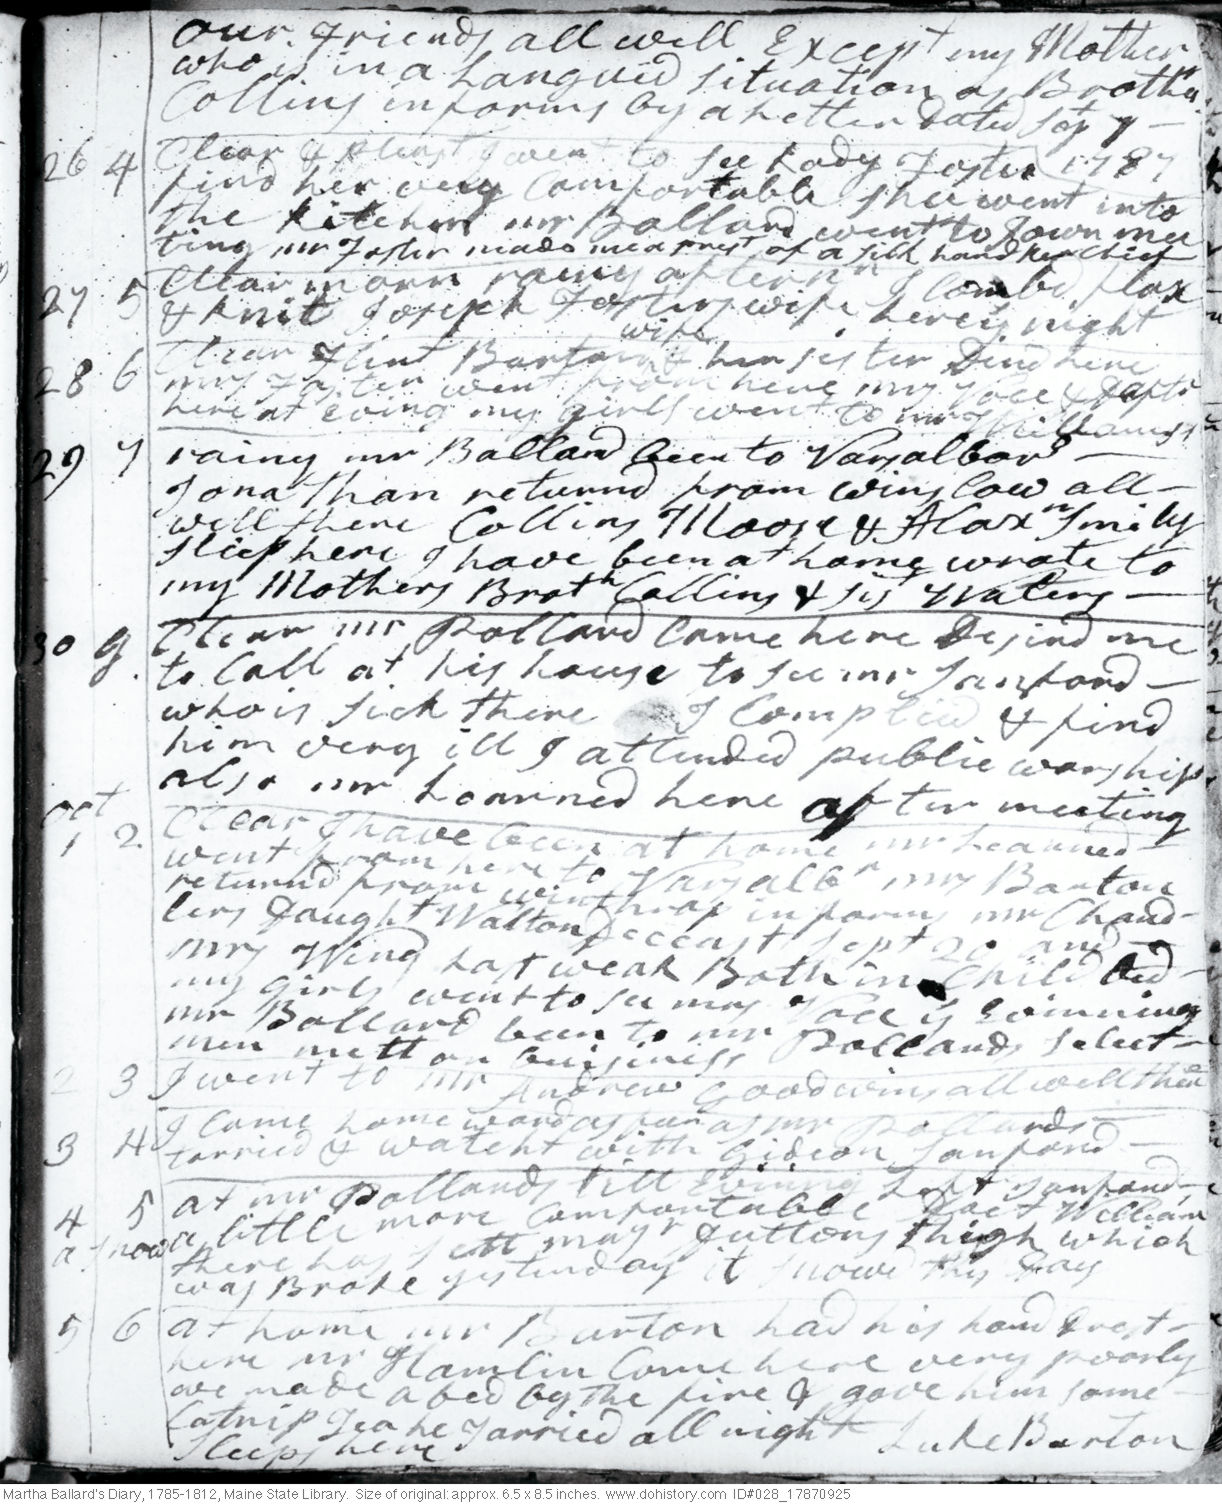 our Friends all well Except my Mother
who is in a Languid situation as Brother
Collins informs by a Letter dated Sep 7
26 4 Clear & pleast I went to see Lady Foster 1787
find her very Comfortable Shee went into
the kitchen mr Ballard went to Town mee
ting mr Foster made me a prest of a silk handkerchief
27 5 Clear morn rainy aftern I Combd flax
& knit Joseph Fosters wife here is night
28 6 Clear Flint Barton wife & her sister Dind here
mrs Foster went from here mrs Voce &
here at Evng my girls went to mr Williams
29 7 rainy mr Ballard been to Vassalboro
Jonathan returnd from winslow all
well there Collins Moore & Alaxn Smily
sleep here I have been at home wrote to
my Mothers Broth Collins & sis Waters
30 g Clear mr Pollard Came here Desird me
to Call at his house to see mr Sanford
who is sick there I Complied & find
him very ill I attended public worship
also mr Learned here after meeting
oct
1 2 Clear I have been at home mr Learned
went from here to Vassalbr mrs Barton
returnd from winthrop informs mr Chand-
lers Daught Walton Deceast Sept 20 and
mrs Wing last weak Both in Child bed
my girls went to see mrs Voce is
mr Ballard been to mr Pollards select
men mett on buisiness
2 3 I went to mr Andrew Goodwins all well there
3 4 I Came homeward as far as mr Pollards
tarried & watcht with Gideon Sanford
4 5 at mr Pollards till Evining Left Sanford
a snow a little more Comfortable Doct William
there has sett majr Juttons thigh which
was Broke yesterday it snowd this Day
5 6 at home mr Burton had his hand drest
here mr Hamlin Came here very poorly
we made a bed by the fire & gave him some
Catnip Tea he Tarried all night Luke Barton
sleeps here
Martha Ballard's Diary, 1785-1812, Maine State Library. Size of original: approx. 6.5 x 8.5 inches. www.dohistory.com ID#028_17870925